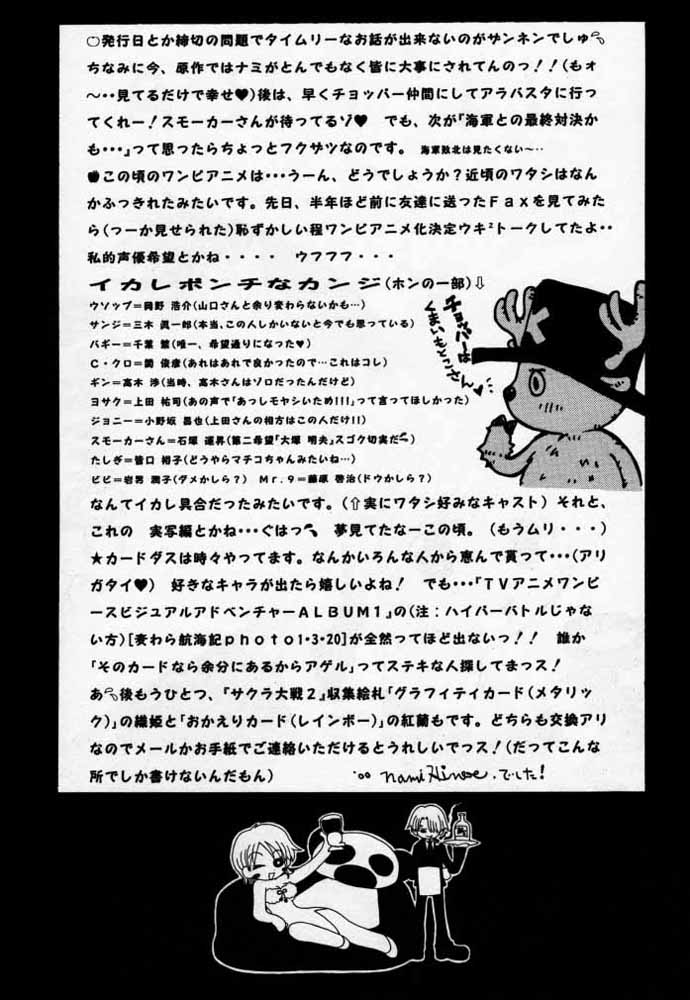 ○発行日とか締切の問題でタイムリーなお話が出来ないのがザンネンでしゅ
ちなみに今、原作ではナミがとんでもなく皆に大事にされてんのっ!!(もォ
〜・・見てるだけで幸せ♥)後は、早くチョッパー仲間にしてアラバスタに行っ
てくれー!スモーカーさんが待ってるゾ♥ でも、次が『海軍との最終対決か
も・・・』って思ったらちょっとフクザツなのです。 海軍敗北は見たくない〜・・
この頃のワンピアニメは・・・うーん、どうでしょうか?近頃のワタシはなん
かふっきれたみたいです。先日、半年ほど前に友達に送ったFaxを見てみた
ら(つーか見せられた)恥ずかしい程ワンピアニメ化決定ウキ²トークしてたよ・・
私的声優希望とかね・・・・ ウフフフ・・・
イカレポンチなカンジ(ホンの一部)⇩
ウソップ=岡野 浩介(山口さんと余り変わらないかも…)
サンジ=三木 眞一郎(本当、この人しかいないと今でも思っている)
バギー=千葉 繁(唯一、希望通りになった♥)
C・クロ=関 俊彦(あれはあれで良かったので…これはコレ)
ギン=高木 渉(当時、高木さんはゾロだったんだけど)
ヨサク=上田 祐司(あの声で「あっしモヤシいため!!!」って言ってほしかった)
ジョニー=小野坂 昌也(上田さんの相方はこの人だけ!!)
スモーカーさん=石塚 運昇(第二希望「大塚 明夫」スゴク切実だ
たしぎ=皆口 裕子(どうやらマチコちゃんみたいね…)
ビビ=岩男 潤子(ダメかしら?) Mr.9=藤原 啓治(ドウかしら?)
チョッパーは
くまいもとこさん♥
なんてイカレ具合だったみたいです。(⇧実にワタシ好みなキャスト) それと、
これの 実写編とかね・・・ぐはっ 夢見てたなーこの頃。(もうムリ・・・)
★カードダスは時々やってます。なんかいろんな人から恵んで貰って・・・(アリ
ガタイ♥) 好きなキャラが出たら嬉しいよね! でも・・・「TVアニメワンピ
ースビジュアルアドベンチャーALBUM1」の(注:ハイパーバトルじゃな
い方)[麦わら航海記photo1・3・20]が全然ってほど出ないっ!! 誰か
「そのカードなら余分にあるからアゲル」ってステキな人探してまっス!
あ 後もうひとつ、『サクラ大戦2』収集絵札「グラフィティカード(メタリッ
ク)」の織姫と「おかえりカード(レインボー)」の紅蘭もです。どちらも交換アリ
なのでメールかお手紙でご連絡いただけるとうれしいでっス!(だってこんな
所でしか書けないんだもん) nami Hirose.でした!